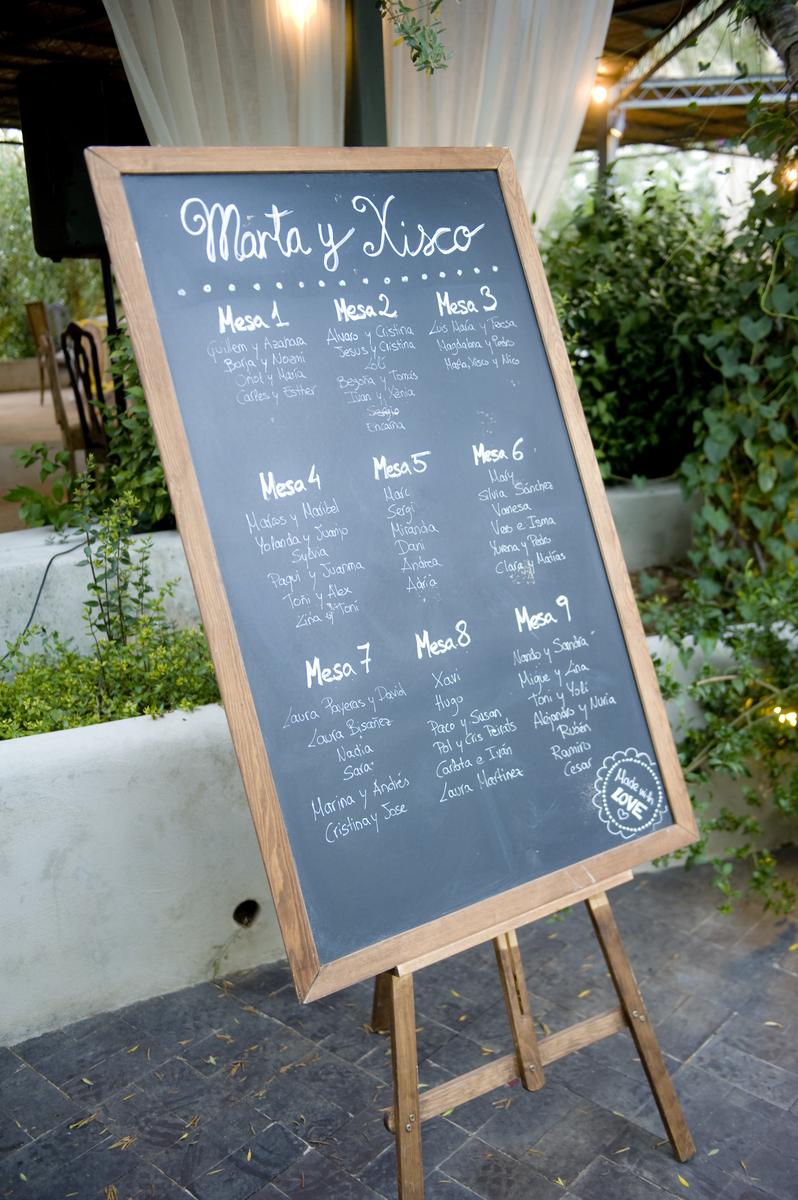 Marta y Xisco
Mesa 1
Guillem y Azahara
Borja y Noemi
Oriol y María
Carles y Esther
Mesa 2
Alvaro y Cristina
Jesus y Cristina
Loli
Begoña y Tomás
Ivan y Xènia
Sergio
Encarna
Mesa 3
Luis María y Teresa
Magdalena y Pedro
Marta, Xisco y Nico
Mesa 4
Marcos y Maribel
Yolanda y Juanjo
Sylvia
Paqui y Juanma
Toñi y Alex
Lina y Toni
Mesa 5
Marc
Sergi
Miranda
Dani
Andrea
Adrià
Mesa 6
Mary
Silvia Sánchez
Vanesa
Vero e Isma
y Pedro
Clara y Matías
Mesa 7
Laura Payeras y David
Laura Bisañez
Nadia
Sara
Marina y Andrés
Cristina y Jose
Mesa 8
Xavi
Hugo
Paco y Susan
Pol y Cris Peirats
Carlota e Iván
Laura Martinez
Mesa 9
Nando y Sandra
Migue y Ana
Toni y Yoli
Alejandro y Nuria
Rubén
Ramiro
Cesar
Made with
LOVE